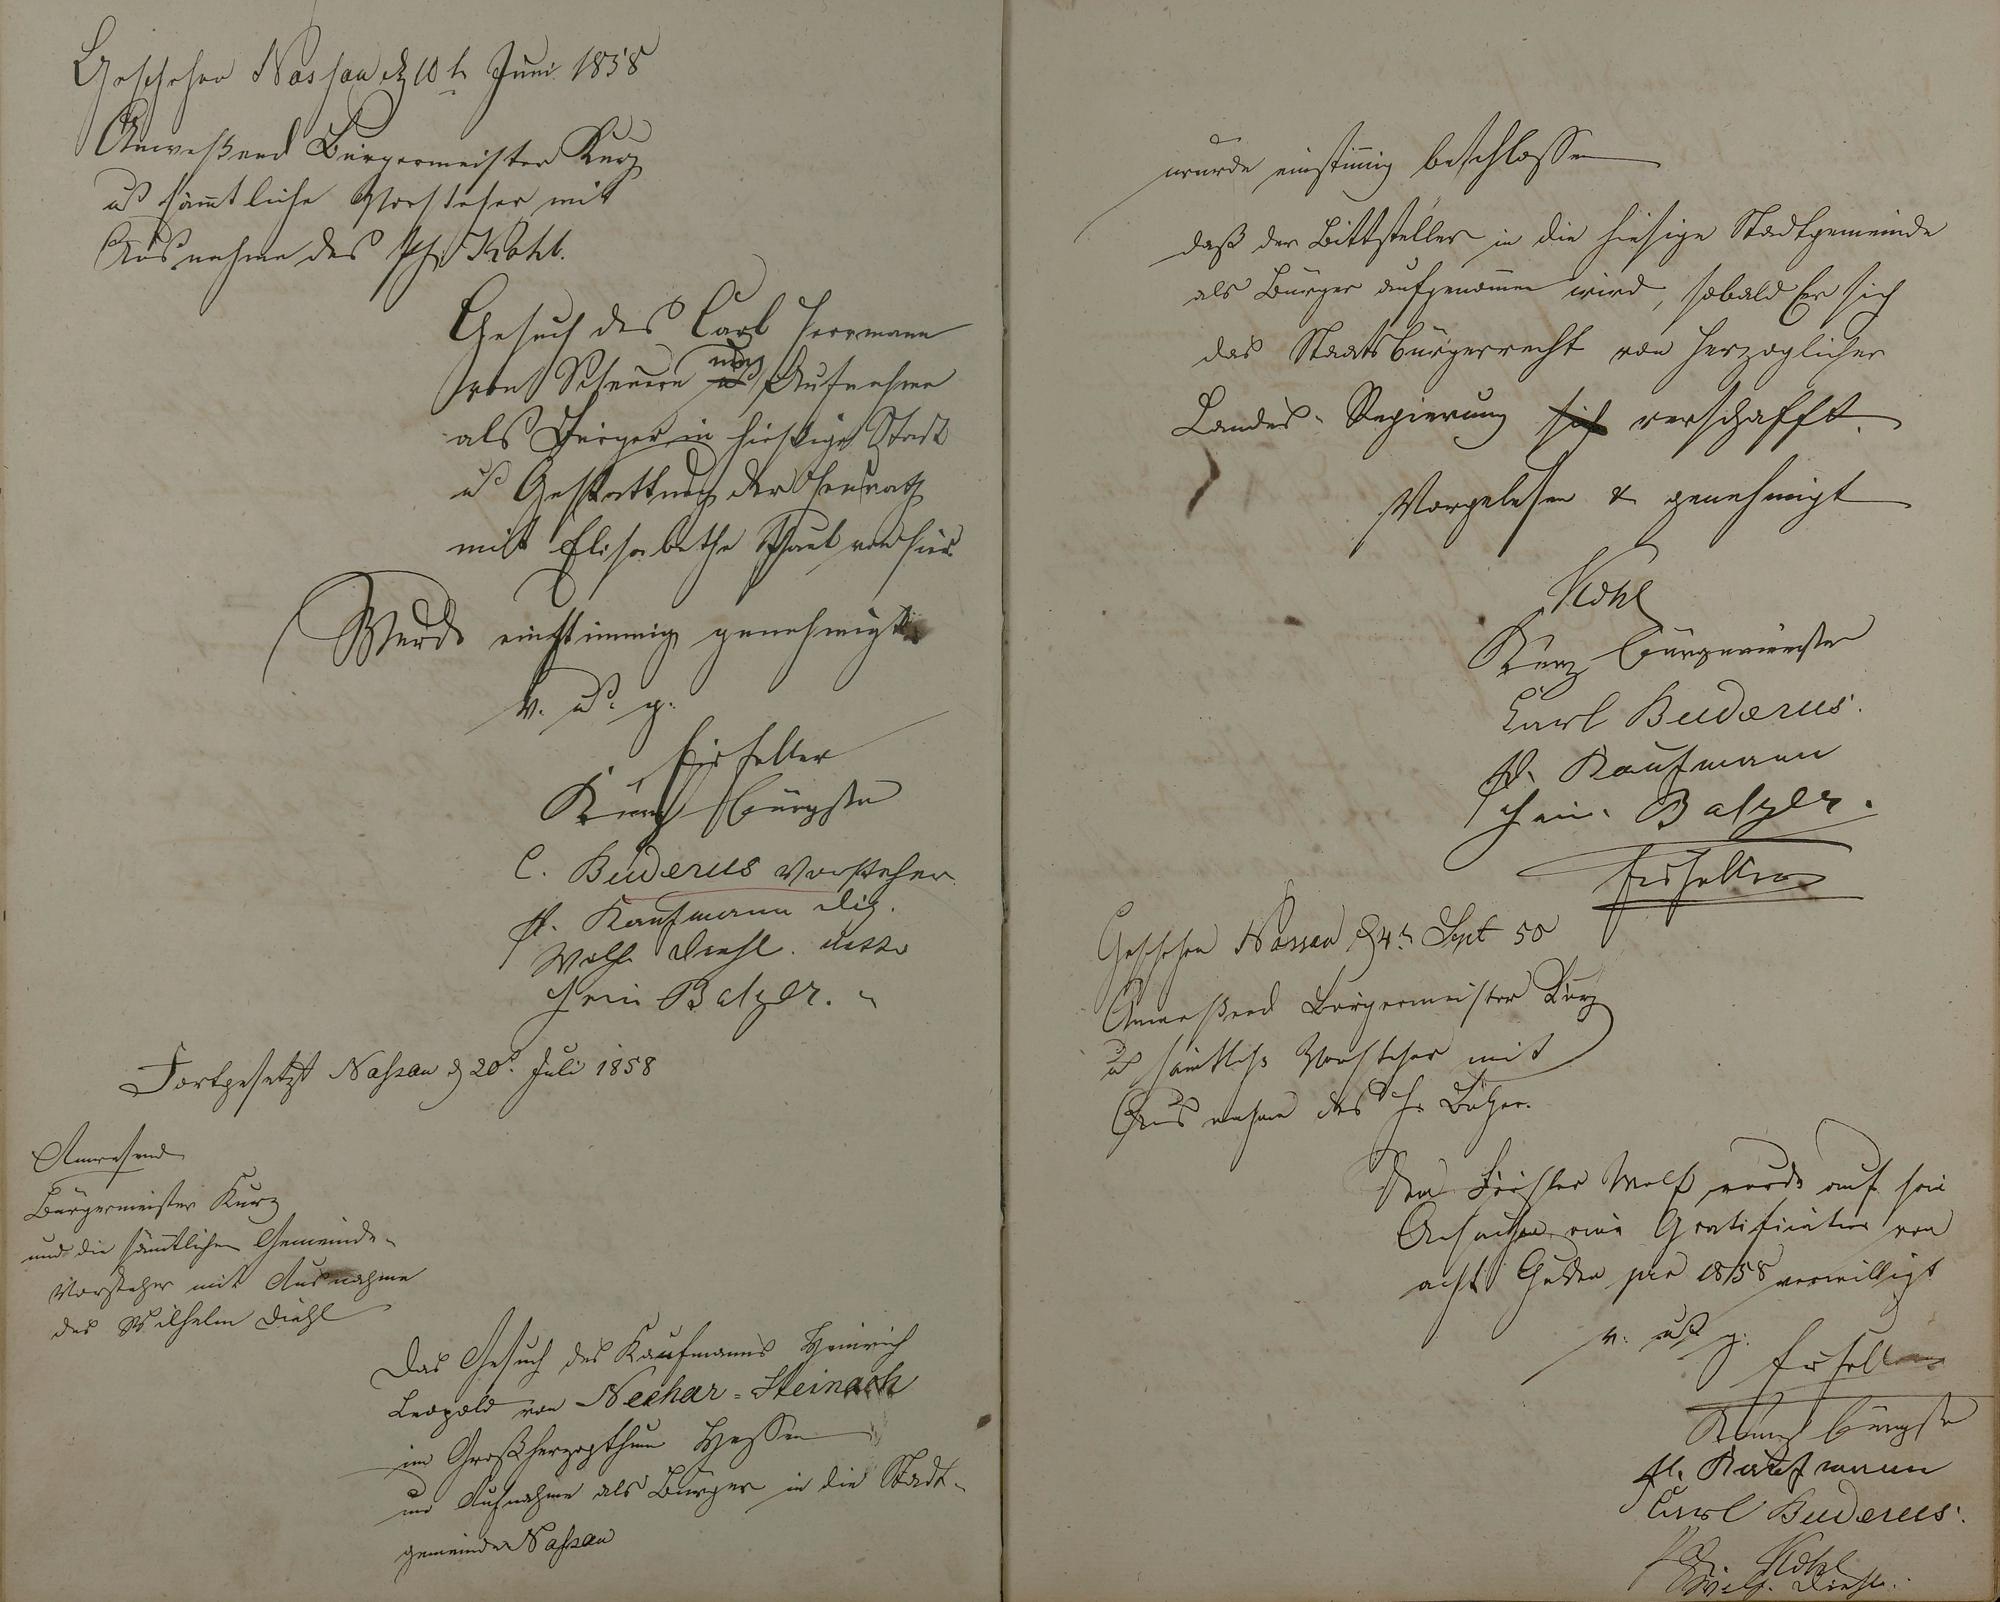 Geschehen Nassau d 10t Juni 1858
Anweßend Bürgermeister Kurz
u sämtliche Vorsteher mit
Ausnahme des Ph. Kohl.
Gesuch des Carl Herrmann
von Scheuern um Aufnahme
als Bürger in hiesige Stadt
u Gestattung der Heurath
mit Elisabethe Paul von hier
Wurde einstimmig genehmigt
v. u. g.
Kurz Bürgste
C. Buderus Vorsteher
P. Kaufmann dig.
Wilh Diehl. ditto
Hein Balzer. "
Fortgesetzt Nassau d 20t Juli 1858
Anwesend
Bürgermeister Kurz
und die sämtlichen Gemeinde-
Vorsteher mit Ausnahme
des Wilhelm Diehl
Das Gesuch des Kaufmanns Heinrich
Leopold von Neckar-Steinach
im Großherzogthum Hessen
um Aufnahme als Bürger in die Stadt-
gemeinde Nassau
wurde einstimig beschlossen
daß der Bittsteller in die hiesige Stadtgemeinde
als Bürger aufgenomen wird, sobald Er sich
das Staatsbürgerrecht von Herzoglicher
Landes-Regierung sich verschafft.
Vorgelesen & genehmigt
Kohl
Kurz Bürgermeister
Carl Buderus.
P. Kaufmann
Hein. Balzer.
Geschehen Nassau d 4t Sept 58
Anweßend Bürgermeister Kurz
u sämtliche Vorsteher mit
Ausnahme des H. Balzer.
Dem Wolf wurde auf sein
Ansuchen eine Gratification von
acht Gulden pro 1858 verwilligt
v. u. g.
Kurz Bürgste
P. Kaufmann
Carl Buderus.
Ph. Kohl
Wilh. Diehl.